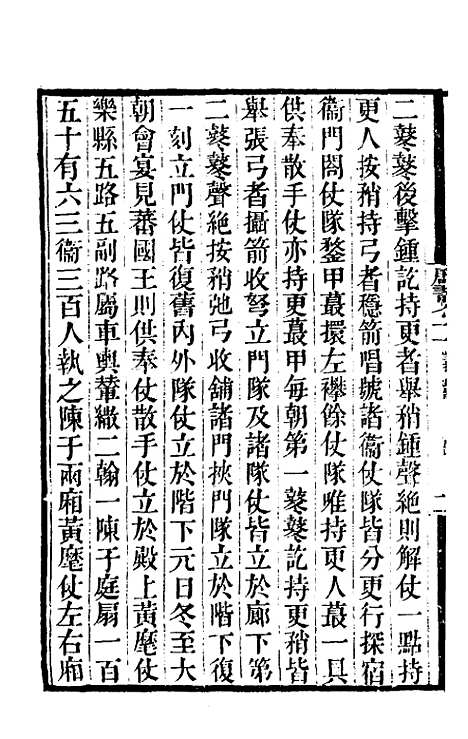 二鼕鼕後擊鍾訖持更者舉矟鍾聲絶則解仗一點持
更人按矟持弓者穩箭唱號諸衞仗隊皆分更行探宿
衞門閤仗隊鍪甲蕞擐左襻餘仗隊唯持更人蕞一具
供奉散手仗亦持更蕞甲每朝第一鼕鼕訖持更矟皆
舉張弓者攝箭收弩立門隊及諸隊仗皆立於廊下第
二鼕鼕聲絶按矟弛弓收舖諸門挾門隊立於階下復
一刻立門仗皆復舊內外隊仗立於階下元日冬至大
朝會宴見蕃國王則供奉仗散手仗立於殿上黃麾仗
樂縣五路五副路屬車輿輦繖二翰一陳于庭扇一百
五十有六三衞三百人執之陳于兩廂黃麾仗左右廂